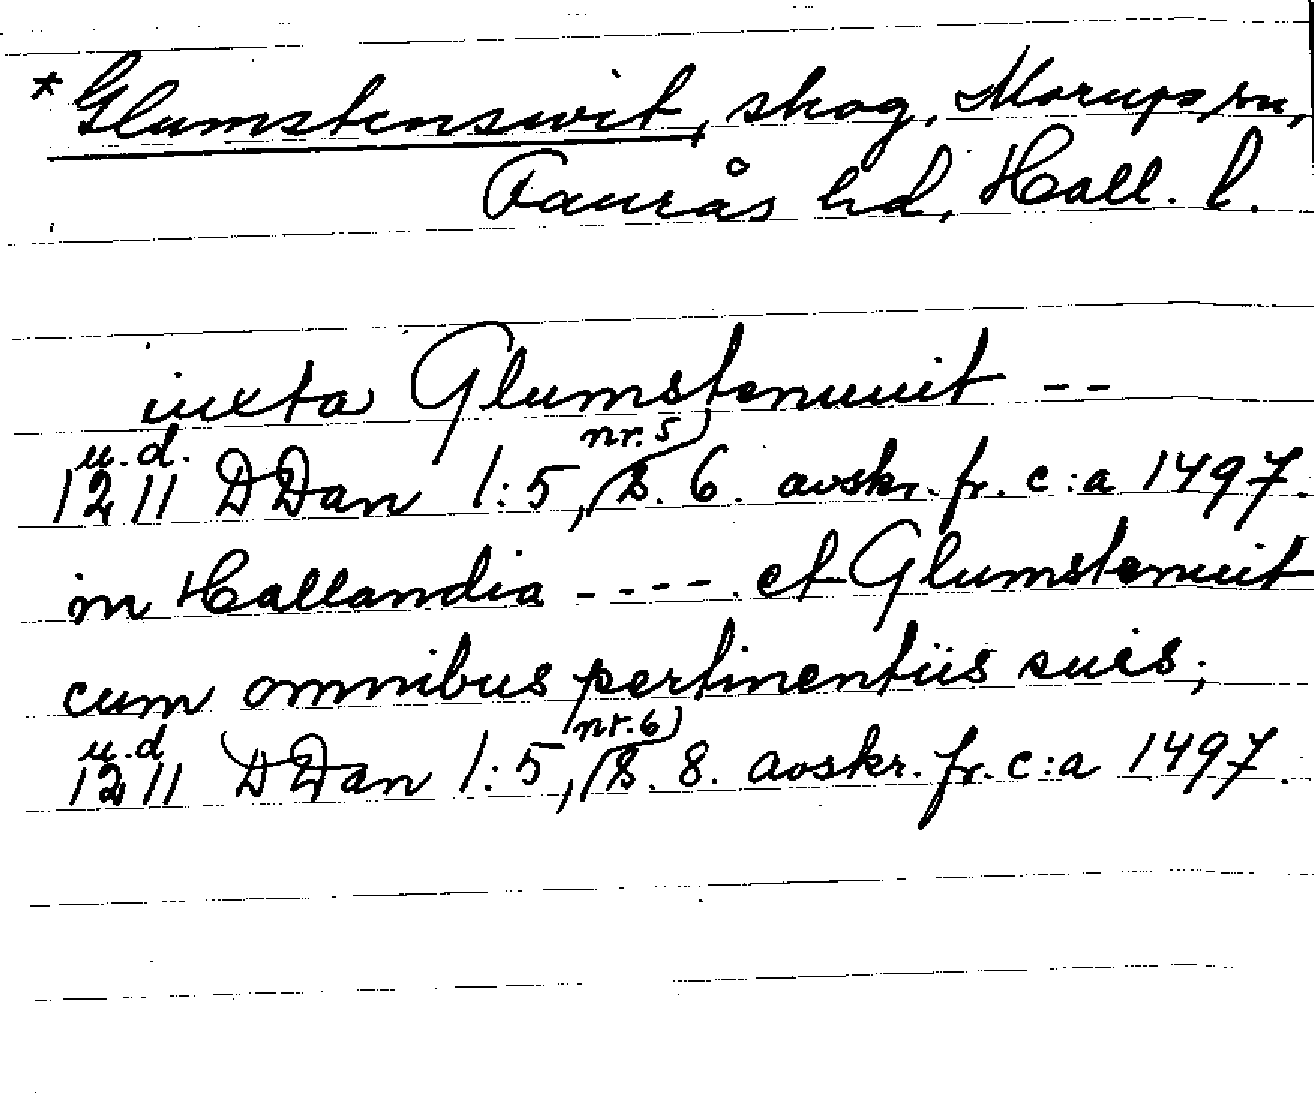 *Glumstenswit, skog, Morups sn,
Faurås hd, Hall. l.
iuxta Glumstenuuit --
u.d. nr. 5
1211 DDan 1:5, s. 6. avskr. fr. c:a 1497.
in Hallandia ---- et Glumstenuit
cum omnibus pertinentiis suis;
u.d nr. 6
1211 DDan 1:5, s. 8. avskr. fr. c:a 1497.